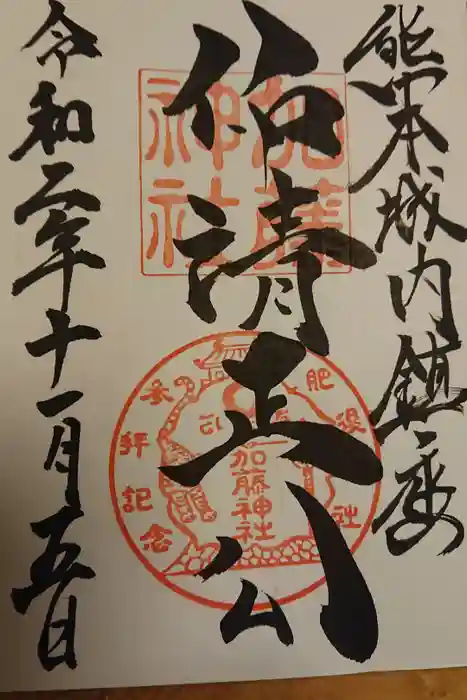 熊本城内鎮座
仰清正公
令和二年十一月五日
加藤
神社
参拝記念
加藤神社